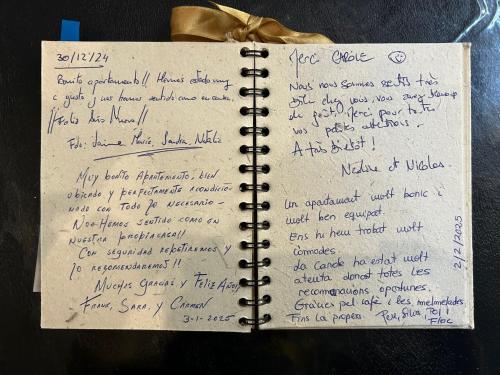 30/12/24
Bonito apartamento!! Hemos estado muy
a gusto y nos hemos sentido como en casa.
¡¡Feliz Año Nuevo!!
Fdo: Jaime, María, Sandra, Natalia
Muy bonito apartamento, bien
ubicado y perfectamente acondicio-
nado con todo lo necesario -
Nos hemos sentido como en
nuestra propia casa!!
Con seguridad repetiremos y
lo recomendaremos!!
Muchas gracias y Feliz Año!
Frank, Sara y Carmen
3-1-2025
Merci CAROLE
Nous nous sommes sentis très
bien chez vous, vous avez beaucoup
de goût, Merci pour toutes
vos petites attentions.
A très bientôt!
Nadine et Nicolas.
Un apartament molt bonic i
molt ben equipat.
Ens hi hem trobat molt
còmodes.
La Carole ha estat molt
atenta donant totes les
recomanacions oportunes.
Gràcies pel cafè i les melmelades.
Fins la propera. Pere, Sílvia, Pol i
Floc
2/2/2025